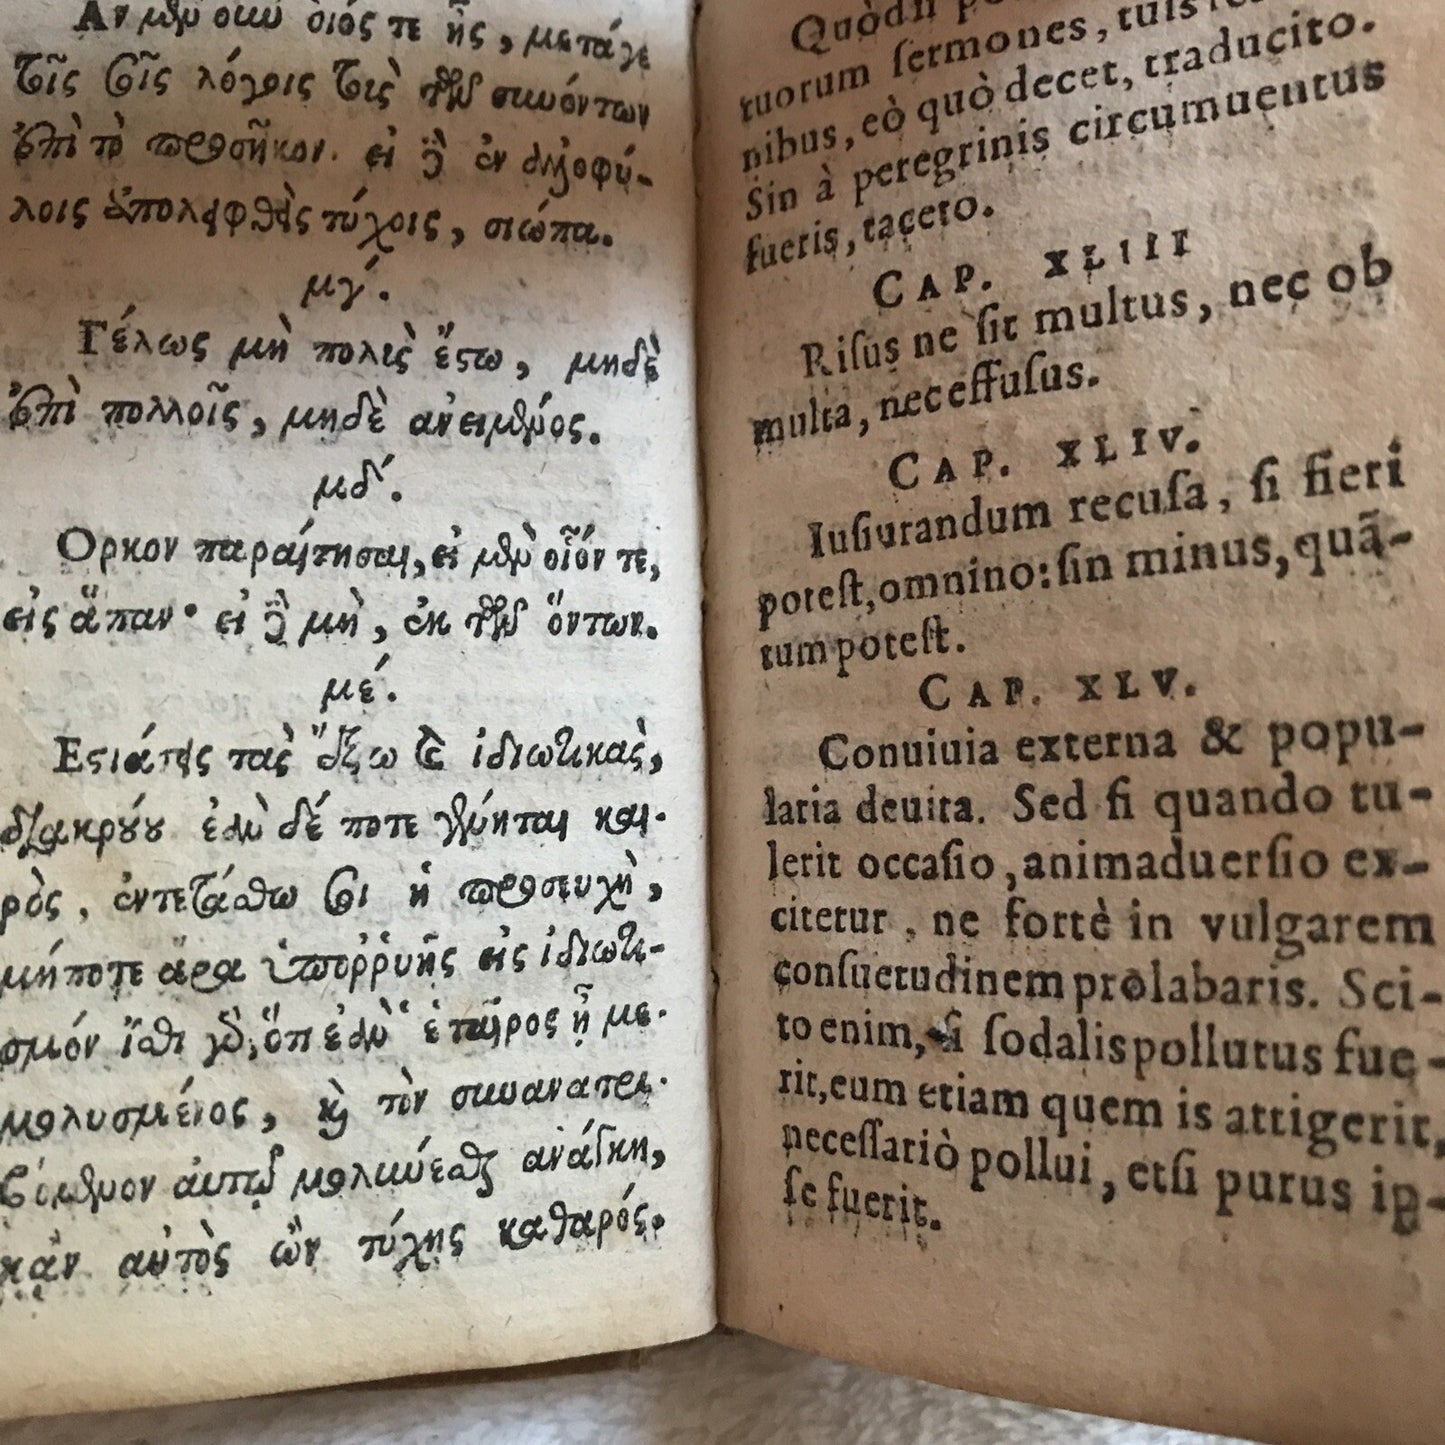 Αν μὲν οιῶ οἱός τε ᾖς, μετάγε
τοῖς σοῖς λόγοις τοὺς τῶν σιωόντων
ἐπὶ τὸ προσῆκον. εἰ δὲ ἐν ἀλλοφύ-
λοις ἀπολειφθεὶς τύχοις, σιώπα.
μγ΄.
Γέλως μὴ πολὺς ἔστω, μηδὲ
ἐπὶ πολλοῖς, μηδὲ ἀνειμένος.
μδ΄.
Ορκον παραίτησαι, εἰ μὲν οἷόν τε,
εἰς ἅπαν· εἰ δὲ μὴ, ἐκ τῶν ὄντων.
με΄.
Εστιάσεις τὰς ἔξω καὶ ἰδιωτικὰς,
διακρούου ἐὰν δέ ποτε γένηται και-
ρὸς, ἐντετάσθω σοι ἡ προσοχὴ,
μήποτε ἄρα ὑποῤῥυῇς εἰς ἰδιωτι-
σμόν ἴσθι γὰρ, ὅτι ἐὰν ὁ ἑταῖρος ᾖ με-
μολυσμένος, καὶ τὸν σιωανατρι-
βόμενον αὐτῷ μολιωύεσθαι ἀνάγκη,
κἂν αὐτὸς ὢν τύχῃς καθαρός.
Quòd ſi
tuorum ſermones, tuis
nibus, eò quò decet, traducito.
Sin à peregrinis circumuentus
fueris, taceto.
CAP. XLIII
Riſus ne ſit multus, nec ob
multa, nec effuſus.
CAP. XLIV.
Iuſiurandum recuſa, ſi fieri
poteſt, omnino: ſin minus, quã-
tum poteſt.
CAP. XLV.
Conuiuia externa & popu-
laria deuita. Sed ſi quando tu-
lerit occaſio, animaduerſio ex-
citetur, ne fortè in vulgarem
conſuetudinem prolabaris. Sci-
to enim, ſi ſodalis pollutus fue-
rit, eum etiam quem is attigerit,
neceſſariò pollui, etſi purus ip-
ſe fuerit.